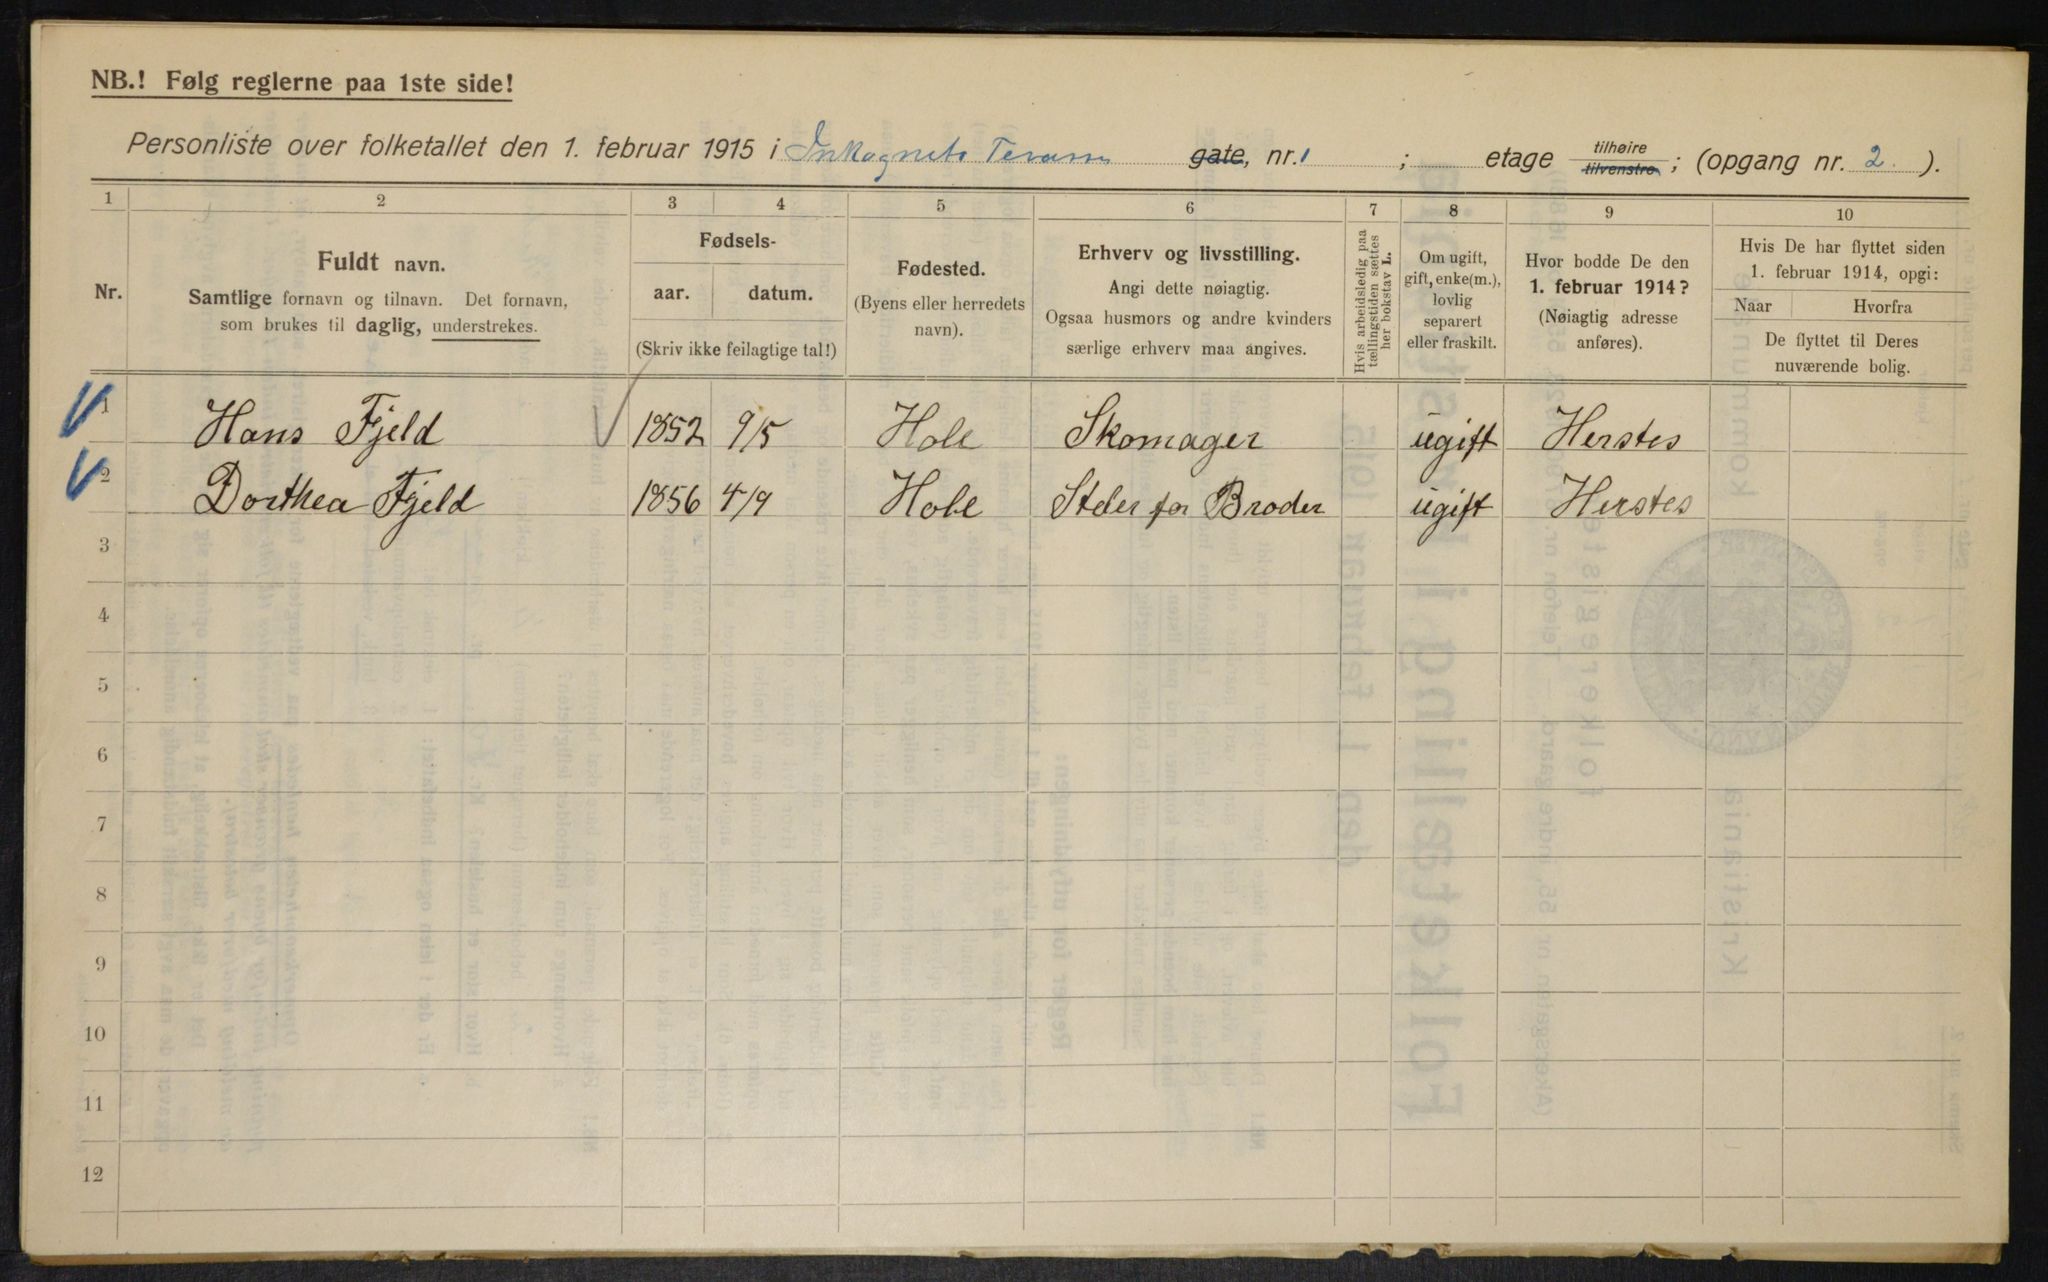 NB.! Følg reglerne paa 1ste side!
Personliste over folketallet den 1. februar 1915 i Inkognito Terasse gate, nr. 1 ; etage tilhøire tilvenstre; (opgang nr. 2 ).
1 2 3 4 5 6 7 8 9 10
Nr.
Fuldt navn.
Samtlige fornavn og tilnavn. Det fornavn,
som brukes til daglig, understrekes.
Fødsels-
aar. datum.
(Skriv ikke feilagtige tal!)
Fødested.
(Byens eller herredets
navn).
Erhverv og livsstilling.
Angi dette nøiagtig.
Ogsaa husmors og andre kvinders
særlige erhverv maa angives.
Hvis arbeidsledig paa
tællingstiden sættes
her bokstav L.
Om ugift,
gift, enke(m.),
lovlig
separert
eller fraskilt.
Hvor bodde De den
1. februar 1914?
(Nøiagtig adresse
anføres).
Hvis De har flyttet siden
1. februar 1914, opgi:
Naar Hvorfra
De flyttet til Deres
nuværende bolig.
1 Hans Fjeld 1852 9/5 Hole Skomager ugift Herstes
2 Dorthea Fjeld 1856 4/9 Hole Steler for Broder ugift Herstes
3
4
5
6
7
8
9
10
11
12